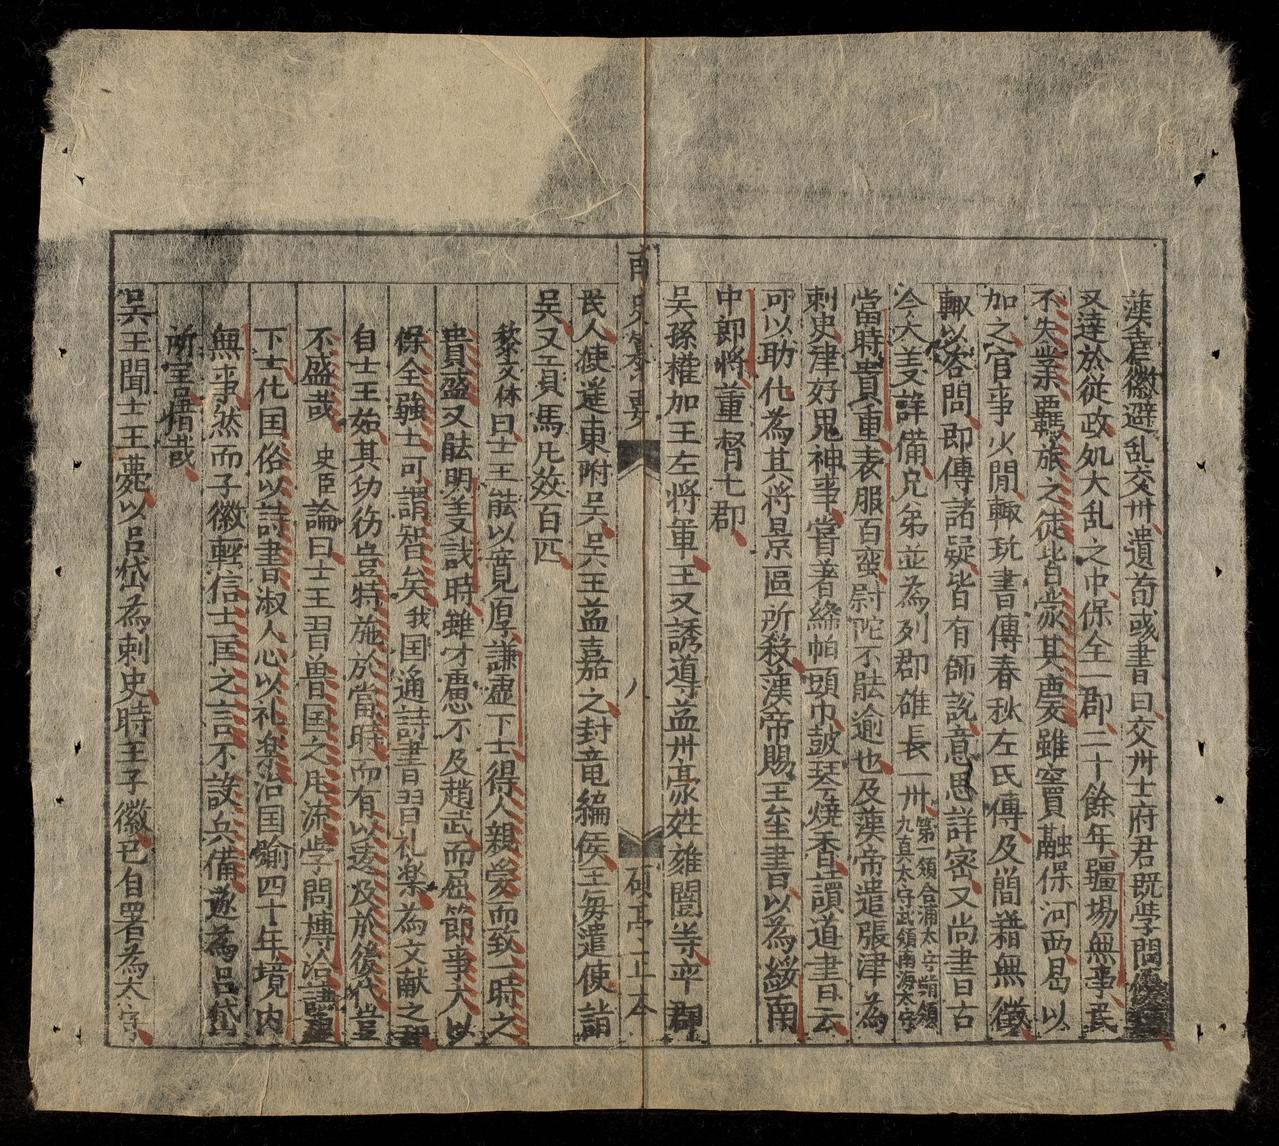 漢袁徽避乱交州遺荀彧書曰交州士府君既学問優
又達於従政処大乱之中保全一郡二十餘年疆場無事民
不失業羇旅之徒皆蒙其慶雖竇融保河西曷以
加之官事少間輙玩書傳春秋左氏傳及簡籍無徵
輙以咨問即傳諸疑皆有師説意思詳密又尚書古
今大義詳備兄弟並為列郡雄長一州
第一領合浦太守䵋領
九真太守武領南海太守
當時貴重表服百蠻尉陀不能逾也及漢帝遣張津為
刺史津好鬼神事嘗著絳帕頭巾鼓琴燒香讀道書云
可以助化為其将景區所殺漢帝賜王玺書以為綏南
中郎将董督七郡
吳孫權加王左将軍王又誘導益州豪姓雍闓等平郡
史
要
八
碩亭正本
民人使遥東附吳吳王益嘉之封竜編侯王毎遣使詣
吳又貢馬凡效百匹
黎文休曰士王能以意見厚謙虚下士得人親愛而致一時之
貴盛又能明全又識時雖才慮不及趙武而屈節事大以
保全強士可謂智矣我国通詩書習礼楽為文献之
自士王始其功彷岂特施於當時而有以遠及於後代豈
不盛哉 史臣論曰士王習曽国之凨流学問博洽謙虚
下士化国俗以詩書淑人心以礼楽治国踰四十年境内
無事然而子徽輕信士匡之言不設兵備遂為呂岱
所惜哉
吳王聞士王薨以呂岱為刺史時王子徽已自署為太守